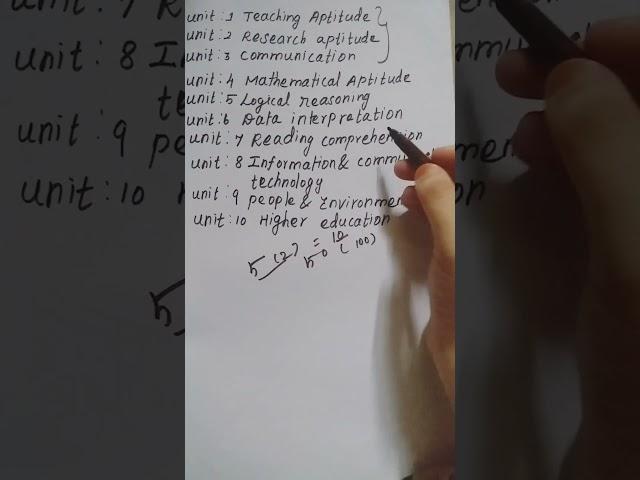 unit: 1 Teaching Aptitude
unit: 2 Research aptitude
unit: 3 Communication
unit: 4 Mathematical Aptitude
unit: 5 Logical reasoning
unit: 6 Data interpretation
unit: 7 Reading comprehension
unit: 8 Information &
technology
unit: 9 people & Environmen
unit: 10 Higher education
5 (2) = 10
50 (100)